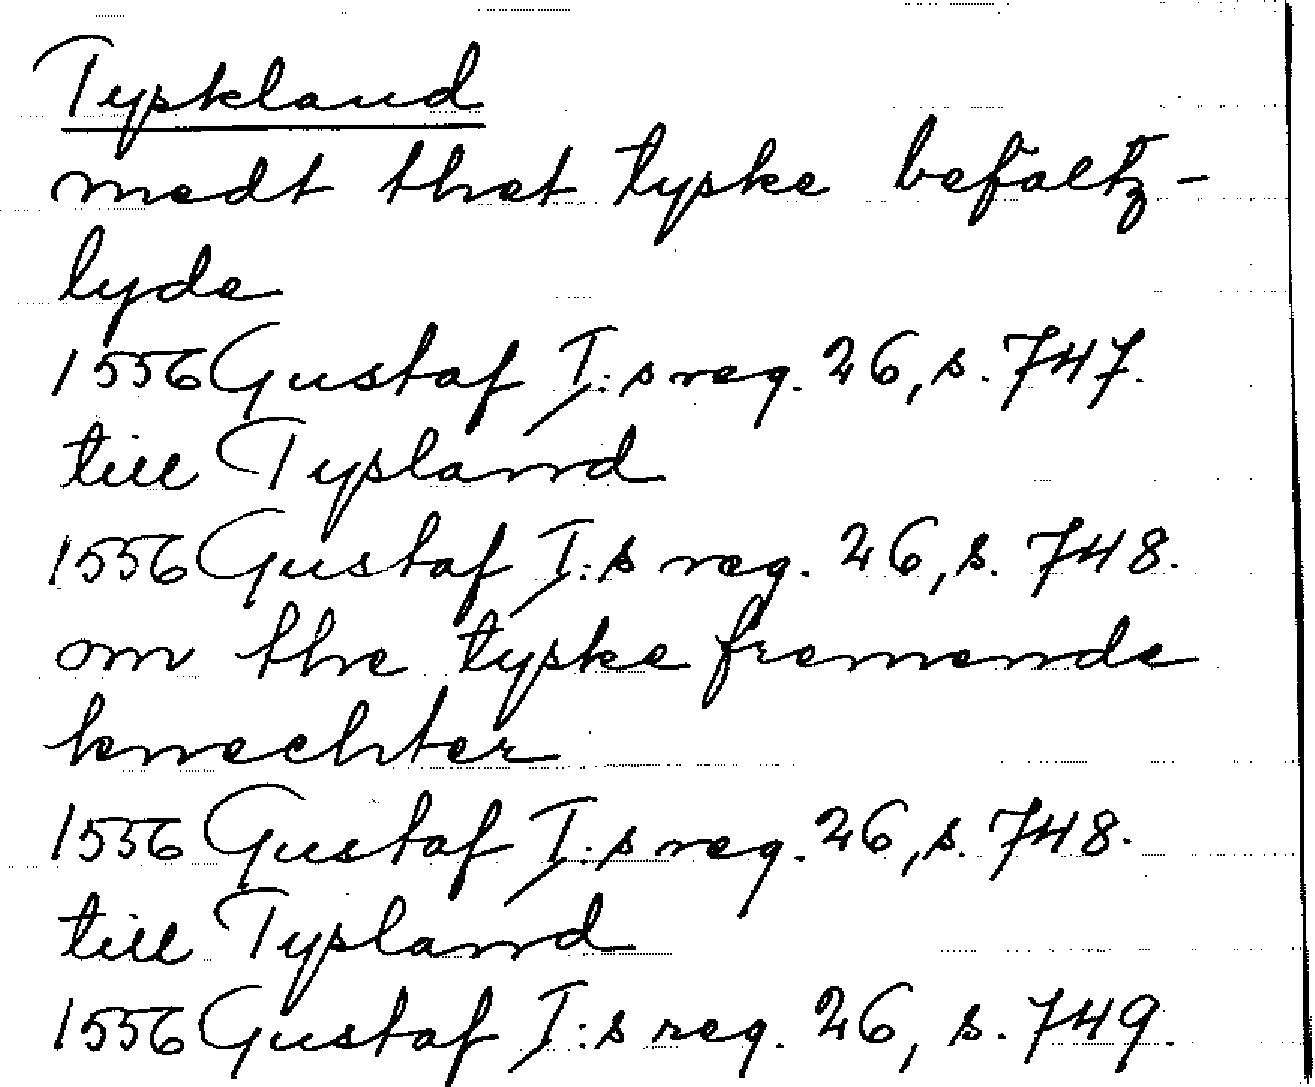 Tyskland
medt thet tyske befaeltz-
lyde
1556 Gustaf I:s reg. 26, s. 747.
till Tysland
1556 Gustaf I:s reg. 26, s. 748.
om the tyske fremende
knechter
1556 Gustaf I:s reg. 26, s. 748.
till Tysland
1556 Gustaf I:s reg. 26, s. 749.